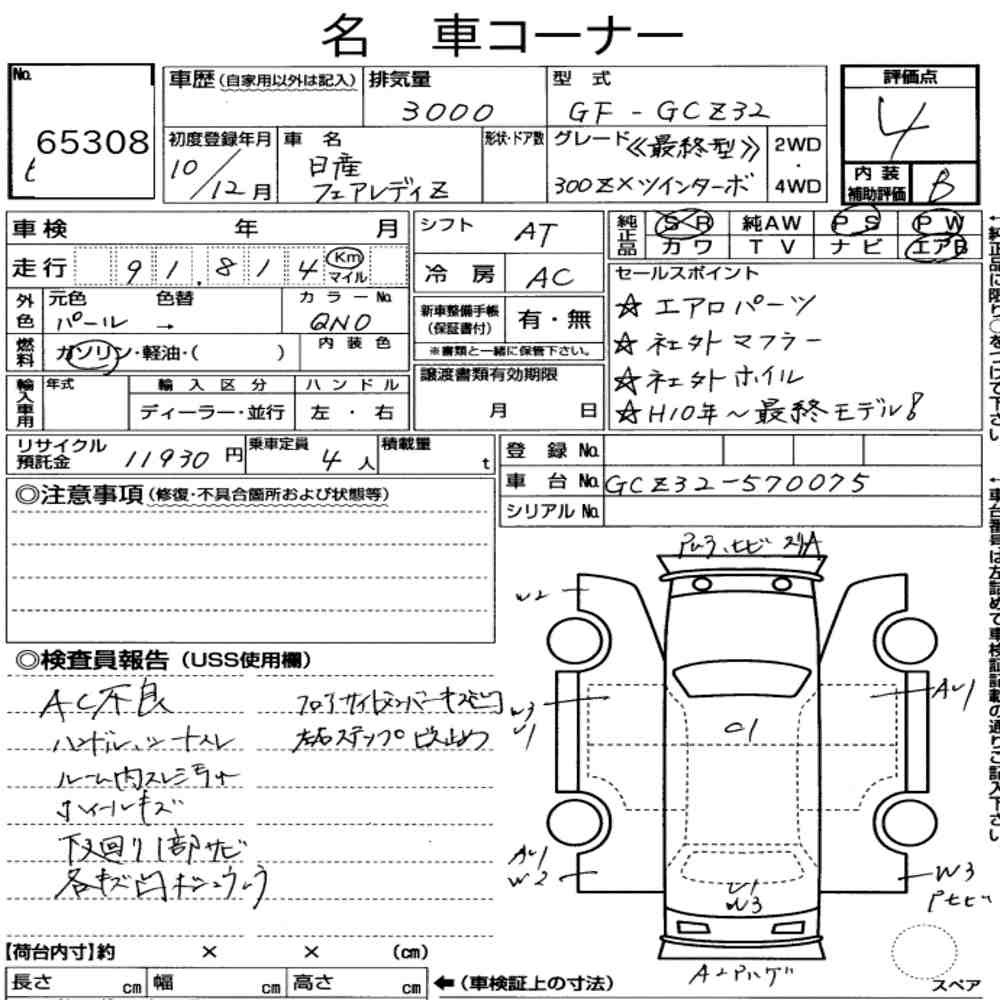 名 車コーナー
No.
65308
t
車歴(自家用以外は記入)
排気量
3000
型式
GF-GCZ32
評価点
4
初度登録年月
10/12月
車名
日産
フェアレディZ
形状・ドア数
グレード
≪最終型≫
300Z×ツインターボ
2WD
・
4WD
内装
補助評価
B
車検 年 月
シフト
AT
純正品
SR 純AW PS PW
カワ TV ナビ エアB
走行 91,814 Km
マイル
冷房
AC
セールスポイント
☆エアロパーツ
☆社外マフラー
☆社外ホイル
☆H10年~最終モデル!
外色
元色 色替 カラーNo.
パール → QN0
新車整備手帳
(保証書付)
有・無
※書類と一緒に保管下さい。
燃料
ガソリン・軽油・( )
内装色
輸入車用
年式
輸入区分
ハンドル
ディーラー・並行
左・右
譲渡書類有効期限
月 日
リサイクル
預託金
11930円
乗車定員
4人
積載量
t
登録No.
車台No.
GCZ32-570075
シリアルNo.
↑純正品に限り○をつけて下さい。
↑車台番号は左詰めで車検証記載の通りご記入下さい。
◎注意事項(修復・不具合箇所および状態等)
W2
◎検査員報告(USS使用欄)
AC不良
ルーム内スレ
下回り1部サビ
左右ステップ
W3
U1
AU1
01
AU1
W2
U1
W3
W3
Pセビ
【荷台内寸】約 × × (cm)
長さ cm
幅 cm
高さ cm
←(車検証上の寸法)
スペア